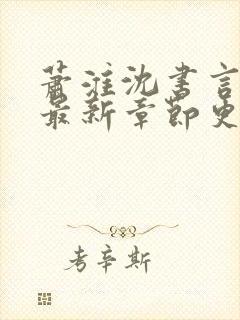 萧淮沈书言
最新章节更
考辛斯